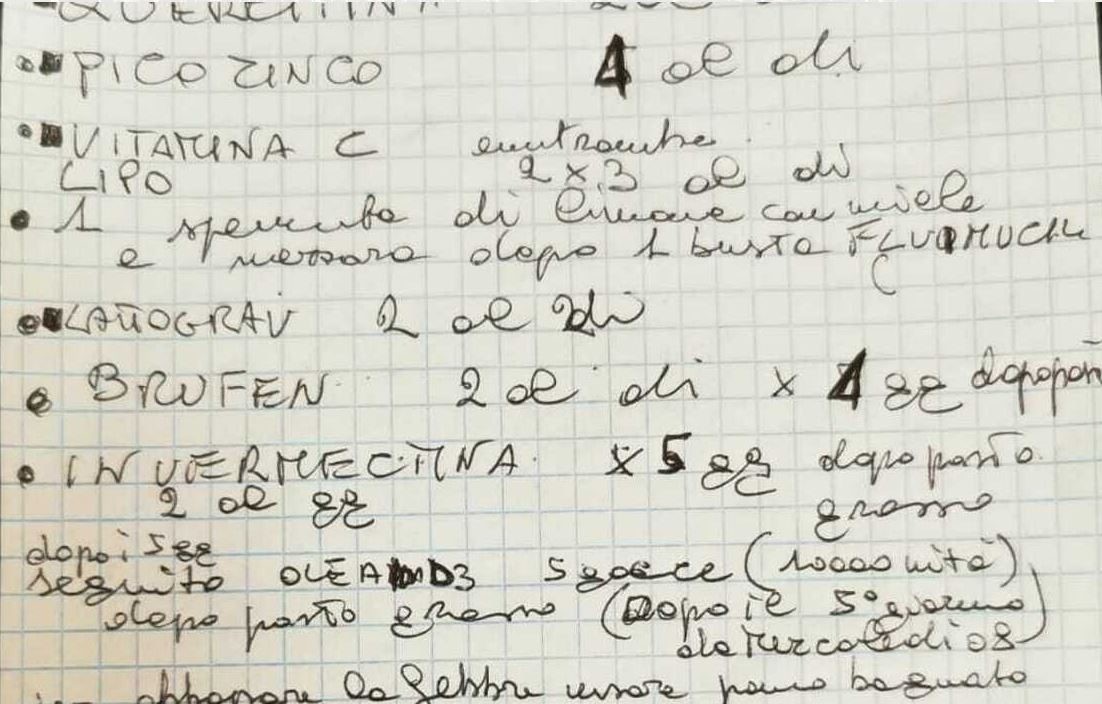 QUERCITINA 2 al di
PICO ZINCO 1 al di
VITAMINA C entrambe
LIPO 2 x 3 al di
1 spremuta di limone con miele
e mezzora dopo 1 busta FLUIMUCIL
LATTOGRAV 2 al di
BRUFEN 2 al di x 4 gg dopo
INVERMECTINA x 5 gg dopo pasto
2 al gg grasso
dopo i 5 gg
seguito OLEA D3 5 gocce (10000 unità)
dopo pasto grasso (Dopo il 5° giorno
da Mercoledi 08)
abbassare la febbre usare panno bagnato